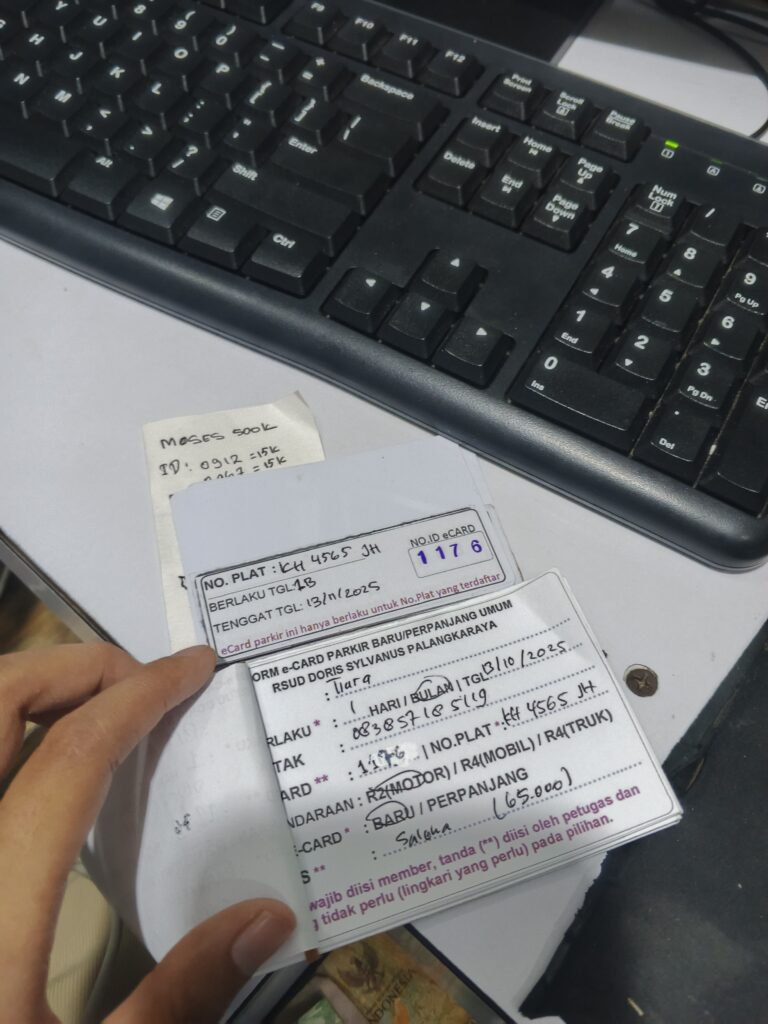 F9 F10 F11 F12
Backspace
Enter
Shift
Alt
Ctrl
Print Screen
Scroll Lock
Pause Break
Insert Home Page Up
Delete End Page Down
Num Lock
7 Home 8 9 Pg Up
4 5 6
1 End 2 3 Pg Dn
0 Ins . Del
MOSES 500K
ID: 0912 = 15K
= 15K
NO. PLAT : KH 4565 JH
NO.ID eCARD
1176
BERLAKU TGL: 1B
TENGGAT TGL: 13/11/2025
eCard parkir ini hanya berlaku untuk No.Plat yang terdaftar
ORM e-CARD PARKIR BARU/PERPANJANG UMUM
RSUD DORIS SYLVANUS PALANGKARAYA
: Tiara
RLAKU * : 1 HARI / BULAN / TGL 13/10/2025
TAK : 083857185119
ARD ** : 1176 | NO.PLAT *: KH 4565 JH
NDARAAN : R2(MOTOR) / R4(MOBIL) / R4(TRUK)
E-CARD * : BARU / PERPANJANG
S ** : (65.000)
wajib diisi member, tanda (**) diisi oleh petugas dan
tidak perlu (lingkari yang perlu) pada pilihan.